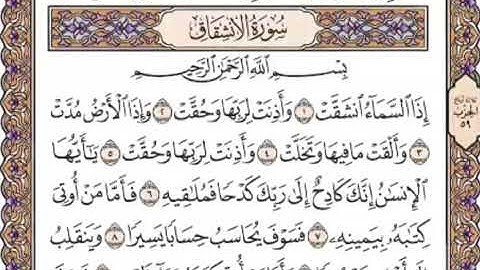 سُورَةُ الِانشِقَاقِ
بِسْمِ اللَّهِ الرَّحْمَٰنِ الرَّحِيمِ
إِذَا السَّمَاءُ انشَقَّتْ ١ وَأَذِنَتْ لِرَبِّهَا وَحُقَّتْ ٢ وَإِذَا الْأَرْضُ مُدَّتْ
٣ وَأَلْقَتْ مَا فِيهَا وَتَخَلَّتْ ٤ وَأَذِنَتْ لِرَبِّهَا وَحُقَّتْ ٥ يَا أَيُّهَا
الْإِنسَانُ إِنَّكَ كَادِحٌ إِلَىٰ رَبِّكَ كَدْحًا فَمُلَاقِيهِ ٦ فَأَمَّا مَنْ أُوتِيَ
كِتَابَهُ بِيَمِينِهِ ٧ فَسَوْفَ يُحَاسَبُ حِسَابًا يَسِيرًا ٨ وَيَنقَلِبُ
الحزب
٥٩